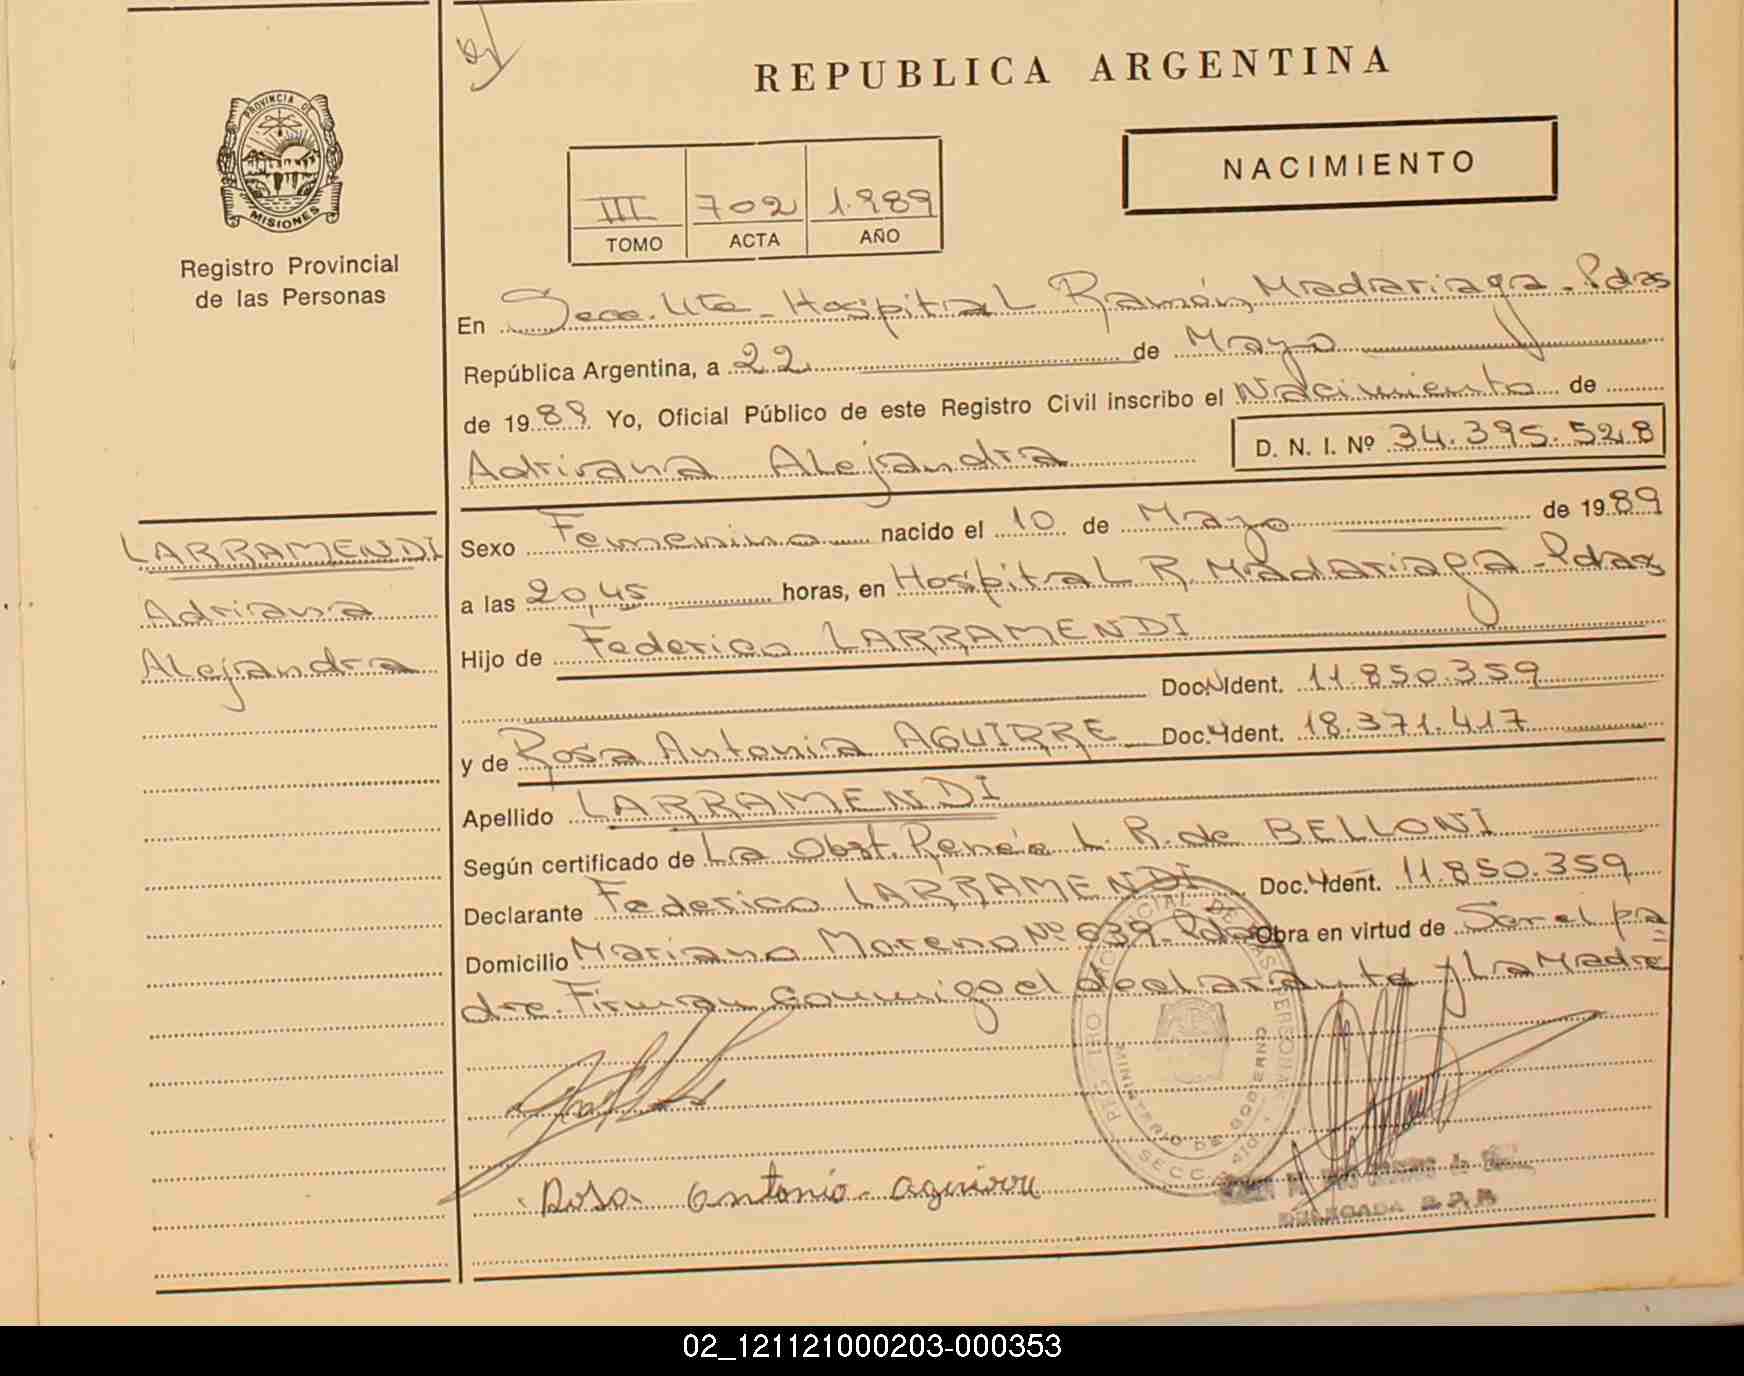 REPUBLICA ARGENTINA
PROVINCIA DE
MISIONES
Registro Provincial
de las Personas
NACIMIENTO
III 702 1.989
TOMO ACTA AÑO
En Secc. Ute - Hospital Ramón Madariaga - Pdas
República Argentina, a 22 de Mayo
de 1989 Yo, Oficial Público de este Registro Civil inscribo el Nacimiento de
Adriana Alejandra D. N. I. Nº 34.395.528
LARRAMENDI
Adriana
Alejandra
Sexo Femenino nacido el 10 de Mayo de 1989
a las 20,45 horas, en Hospital R. Madariaga - Pdas
Hijo de Federico LARRAMENDI
Doc. Ident. 11.850.359
y de Rosa Antonia AGUIRRE Doc. Ident. 18.371.417
Apellido LARRAMENDI
Según certificado de La Obst. Renée L. R. de BELLONI
Declarante Federico LARRAMENDI Doc. Ident. 11.850.359
Domicilio Mariano Moreno Nº 639 - Pdas Obra en virtud de Ser el pa
dre. Firman Conmigo el declarante y La Madre
MINISTERIO DE GOBIERNO
SECC
Rosa Antonia aguirre
DELEGADA
02_121121000203-000353